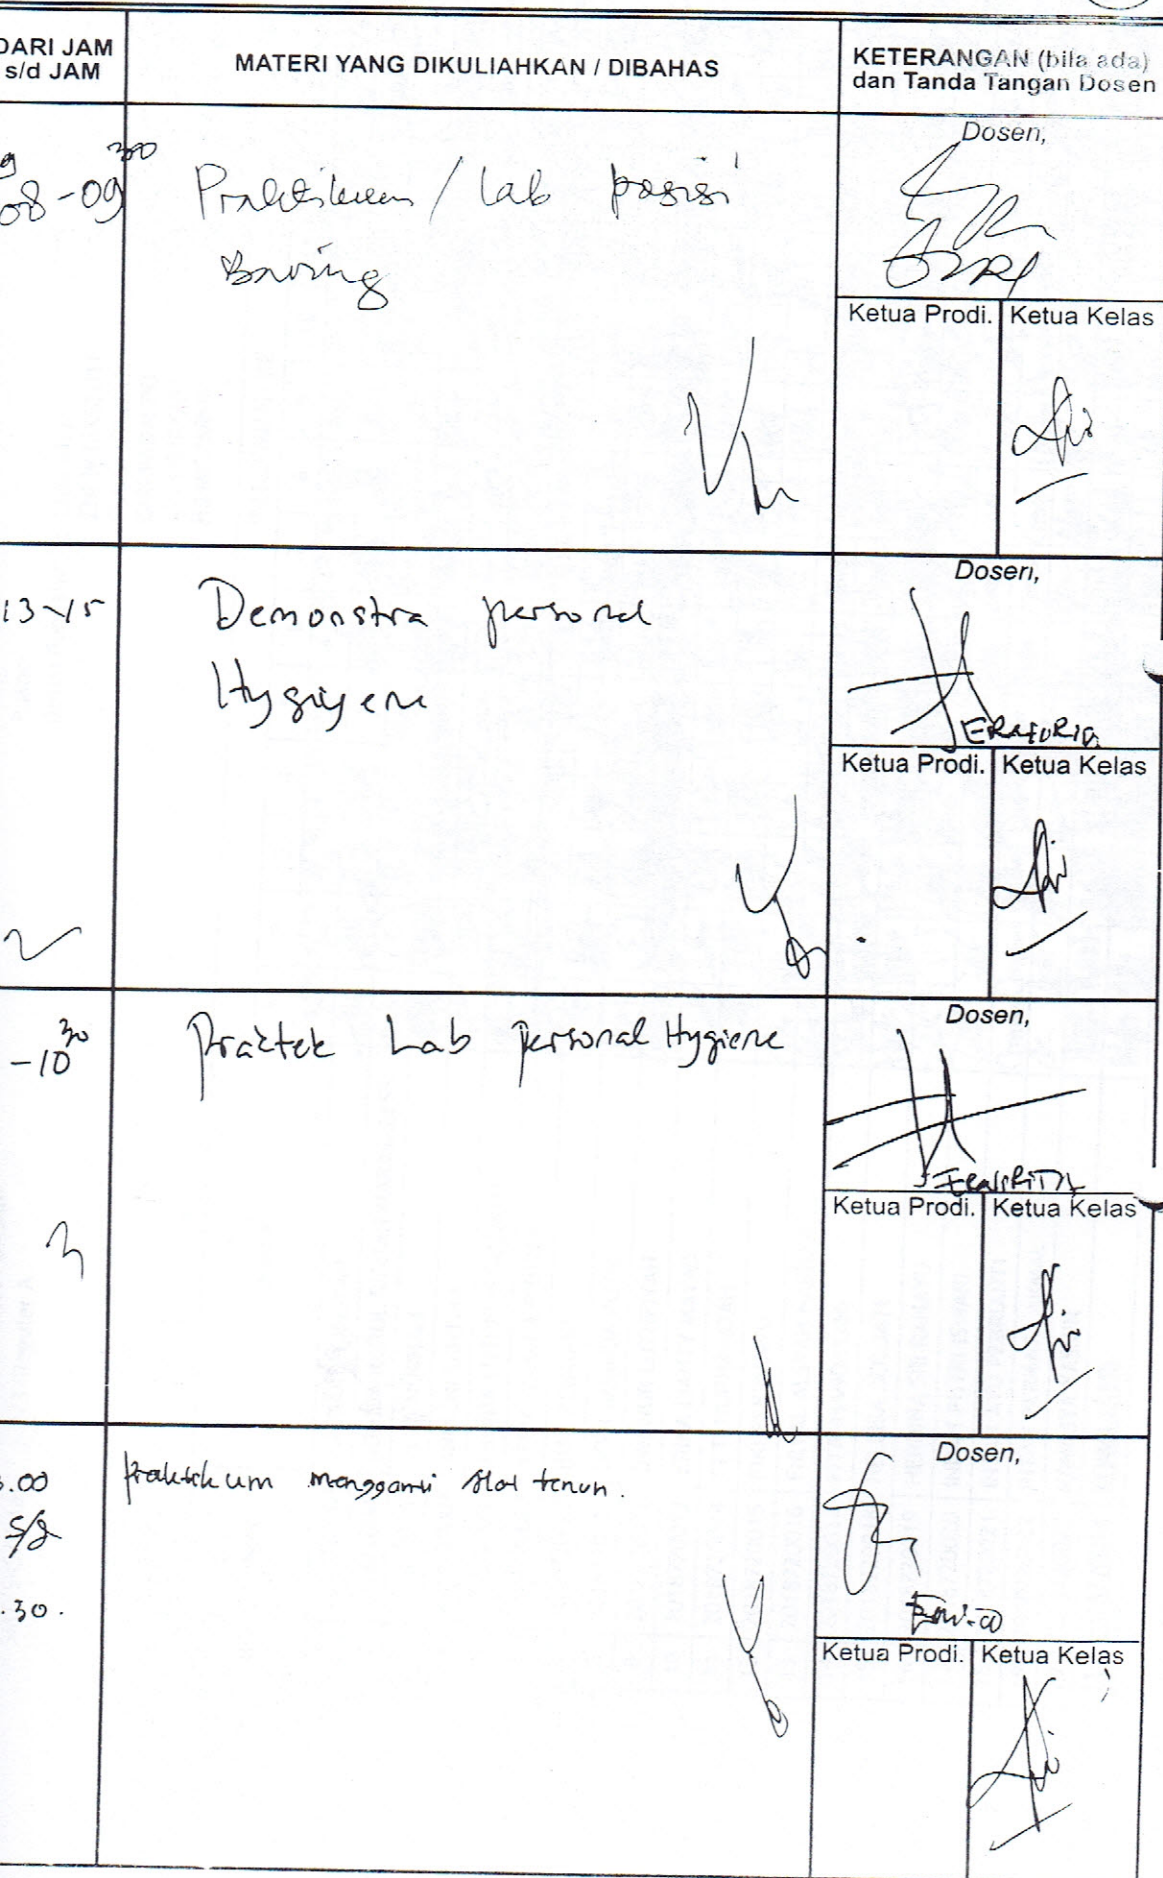 DARI JAM
s/d JAM
MATERI YANG DIKULIAHKAN / DIBAHAS
KETERANGAN (bila ada)
dan Tanda Tangan Dosen
Dosen,
30
08-09
Praktikum / Lab posisi
Baring
Ketua Prodi. Ketua Kelas
Dosen,
13-15
Demonstra personal
Hygiyene
Ketua Prodi. Ketua Kelas
Dosen,
-10 30
Praktek Lab Personal Hygiene
Ketua Prodi. Ketua Kelas
Dosen,
.00
s/d
.30.
Praktikum mengganti alat tenun.
Ketua Prodi. Ketua Kelas